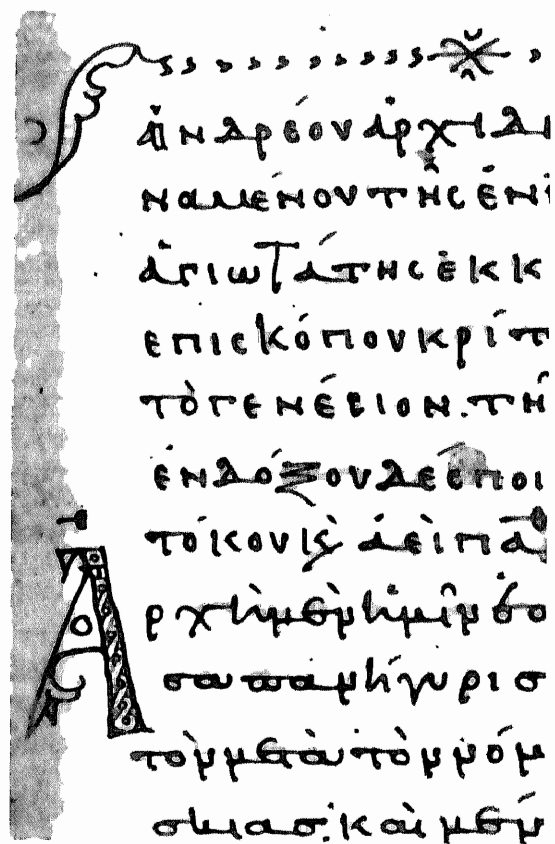 ἀνδρέου ἀρχιδι
ναμένου τῆς ἐνι
ἁγιωτάτης ἐκκ
ἐπισκόπου κρίτ
τὸ γενέσιον. τῆ
ἐνδόξου δεσποι
τόκου κ̀ ἀεὶ πα
Αρχὴ μὲν ἡμῖν ἑο
σα πανήγυρισ
τὸν μετὰ τὸν νόμ
σκιασ. καὶ μὲν